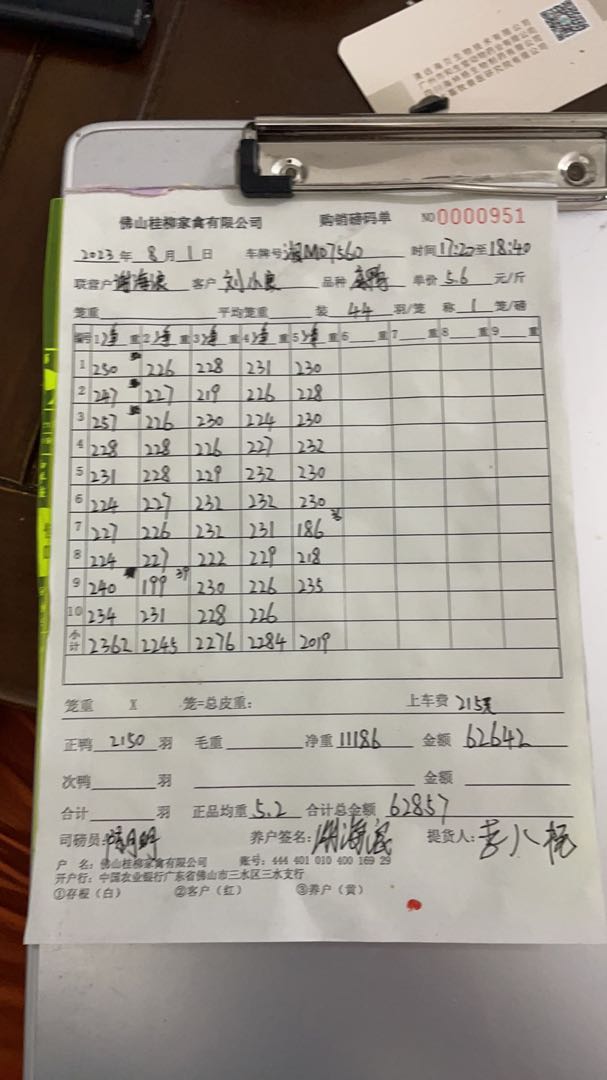 佛山桂柳家禽有限公司 购销磅码单 NO 0000951
2023年 8月 1日 车牌号 湘M07560 时间 17:20至18:40
联营户 谢海浪 客户 刘小良 品种 单价 5.6 元/斤
笼重 平均笼重 装 44 羽/笼 称 1 笼/磅
编号 1 净 重 2 净 重 3 净 重 4 净 重 5 净 重 6 重 7 重 8 重 9 重
1 250 226 228 231 230
2 247 227 219 226 228
3 257 226 230 224 230
4 228 228 226 227 232
5 231 228 229 232 230
6 224 227 232 232 230
7 227 226 232 231 186
8 224 227 222 229 218
9 240 199 39 230 226 235
10 234 231 228 226
小计 2362 2245 2276 2284 2019
笼重 X 笼=总皮重: 上车费 215元
正鸭 2150 羽 毛重 净重 11186 金额 62642
次鸭 羽 金额
合计 羽 正品均重 5.2 合计总金额 62857
司磅员: 养户签名: 谢海浪 提货人:
户 名: 佛山桂柳家禽有限公司 账号: 444 401 010 400 169 29
开户行: 中国农业银行广东省佛山市三水区三水支行
①存根（白） ②客户（红） ③养户（黄）